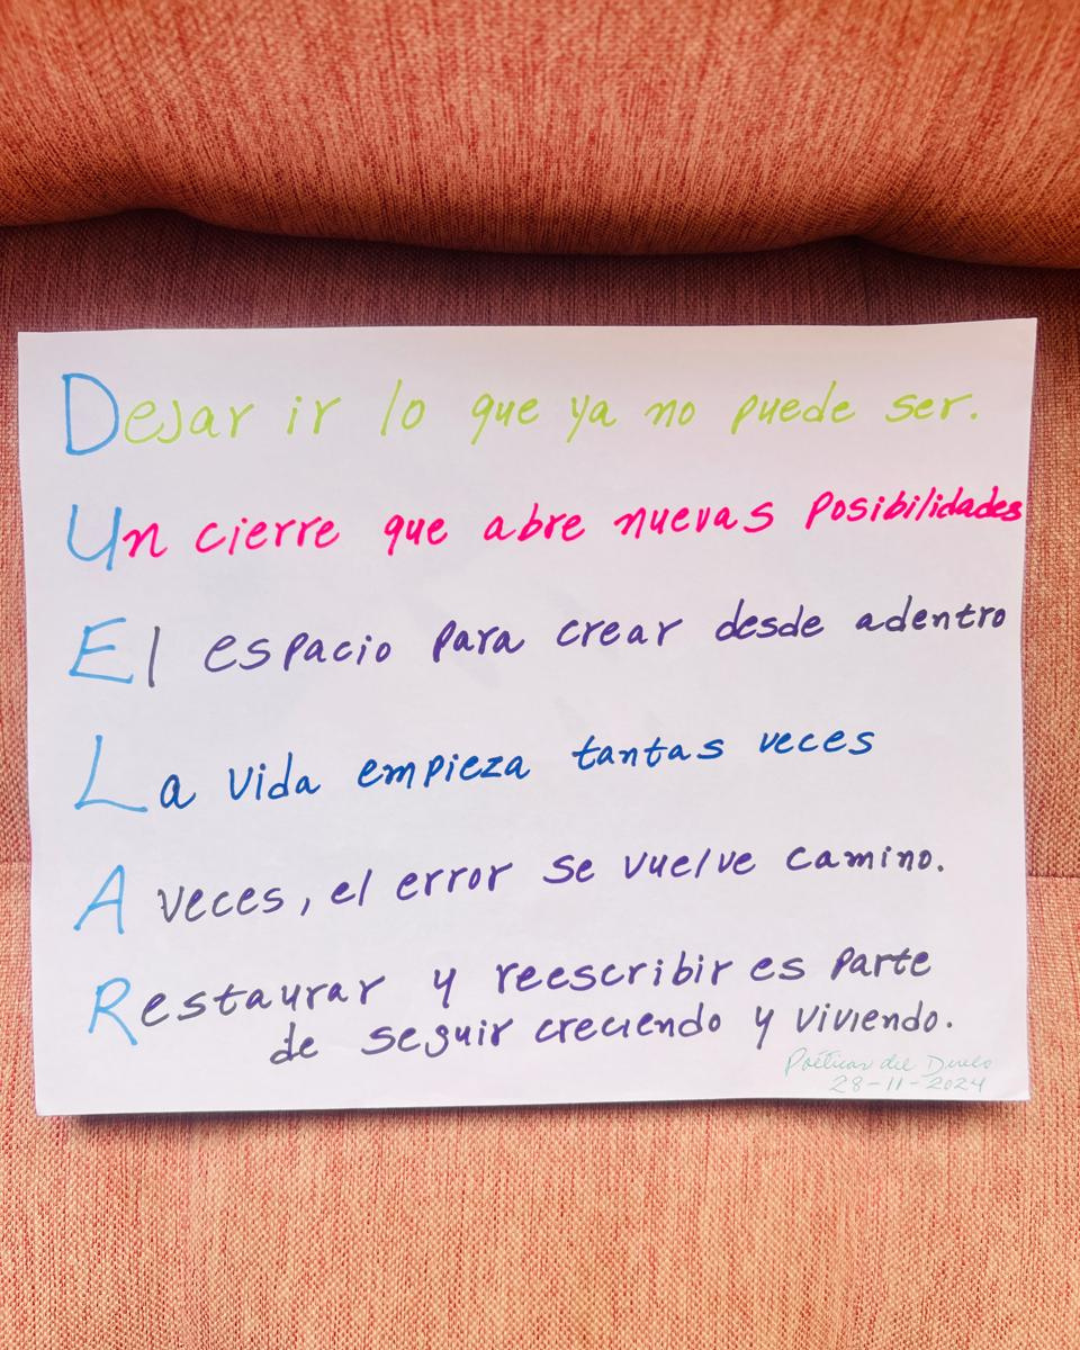 Dejar ir lo que ya no puede ser.
Un cierre que abre nuevas posibilidades
El espacio para crear desde adentro
La vida empieza tantas veces
A veces, el error se vuelve camino.
Restaurar y reescribir es parte
de seguir creciendo y viviendo.
Poéticas del Duelo
28-11-2024